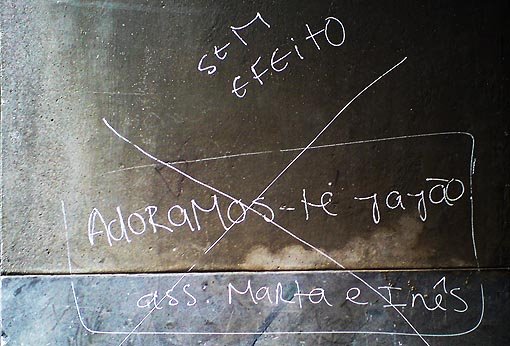 SEM
EFEITO
ADORAMOS-tE JAJÃO
ass. Marta e Inês